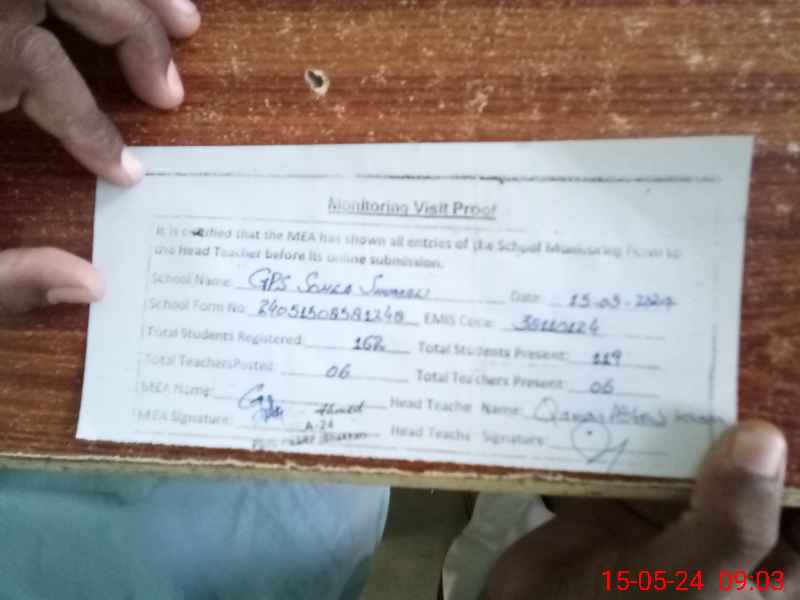 Monitoring Visit Proof
It is certified that the MEA has shown all entries of the School Monitoring Form to
the Head Teacher before its online submission.
School Name: GPS Date: 15-05-2024
School Form No: 24051508581248 EMIS Code:
Total Students Registered: 162 Total Students Present: 119
Total TeachersPosted: 06 Total Teachers Present: 06
MEA Name: Ahmed Head Teache Name: Qamar
MEA Signature: A-24 Head Teache Signature:
15-05-24 09:03